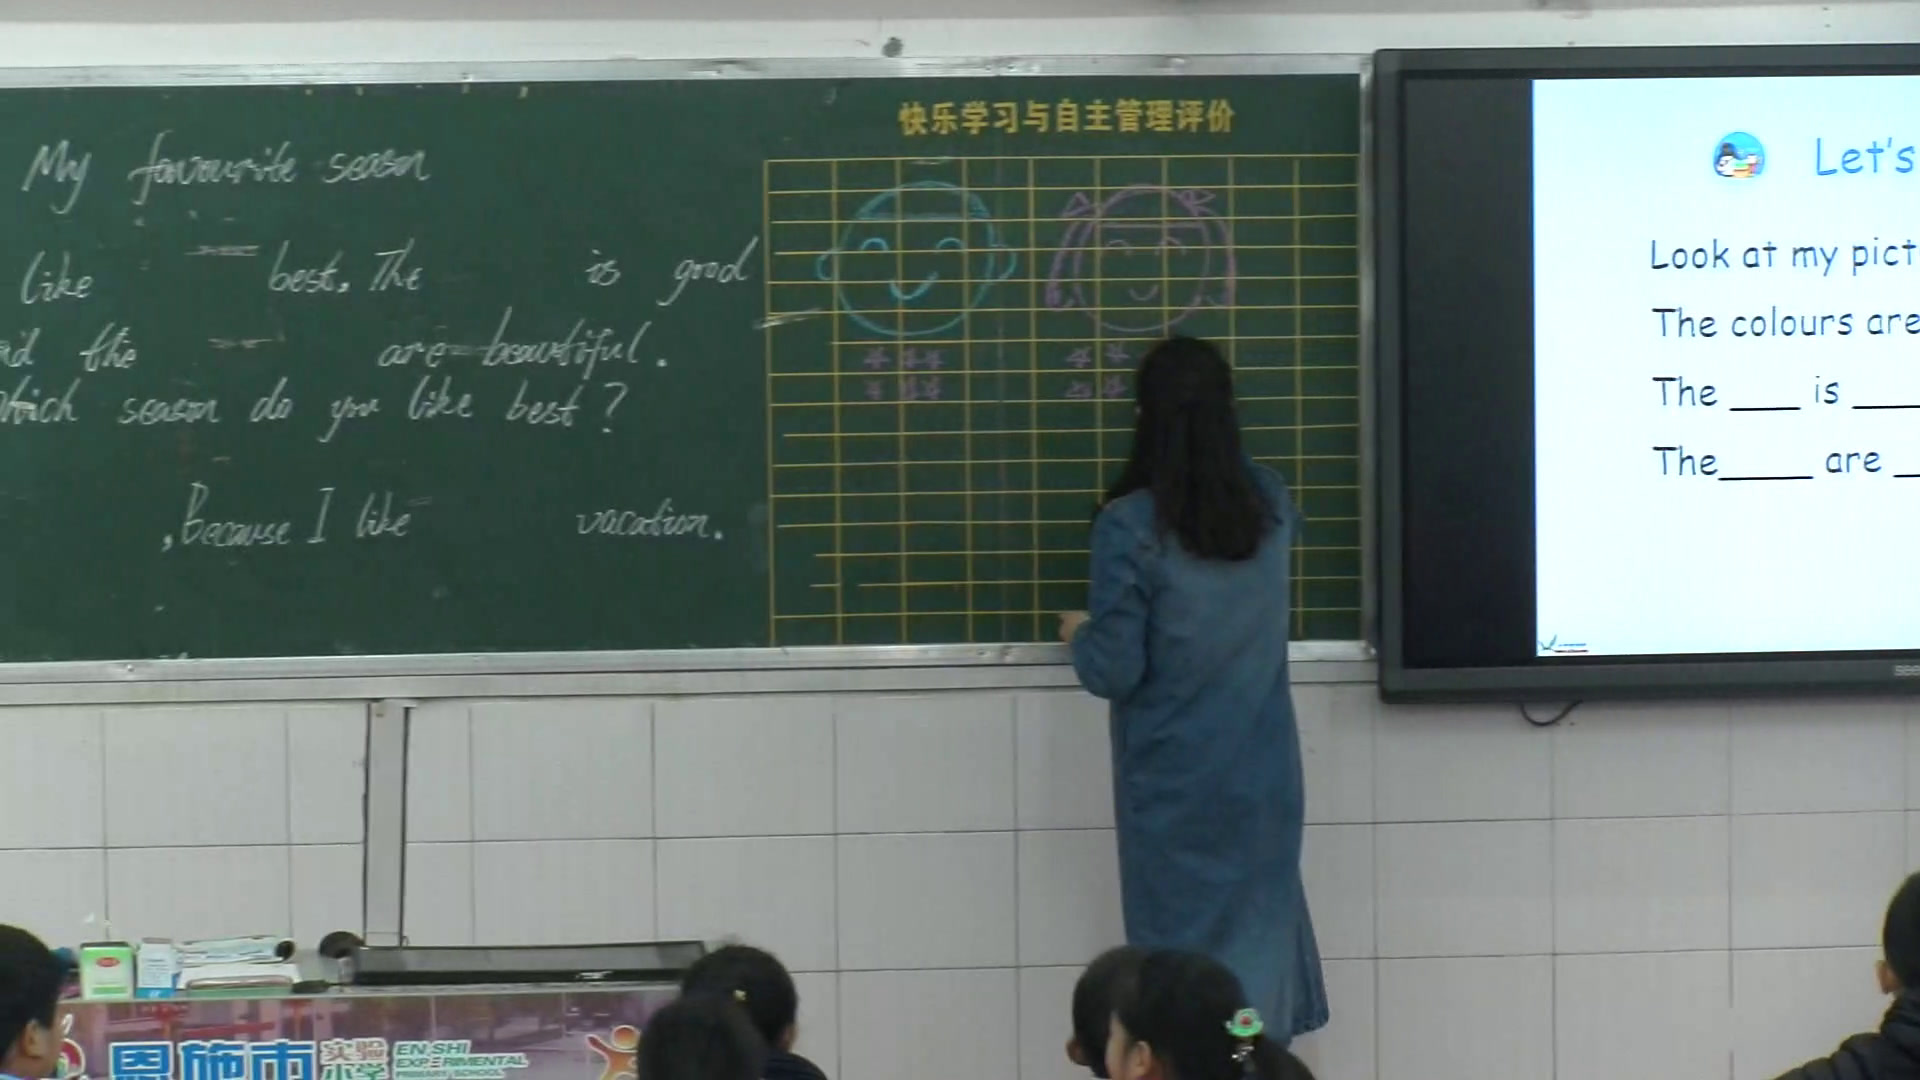 My favourite season
like best. The is good
the are beautiful.
Which season do you like best?
, Because I like vacation.
快乐学习与自主管理评价
Let's
Look at my pict
The colours are
The ____ is ____
The____ are __
恩施市
实验
小学
EN SHI
EXPERIMENTAL
PRIMARY SCHOOL